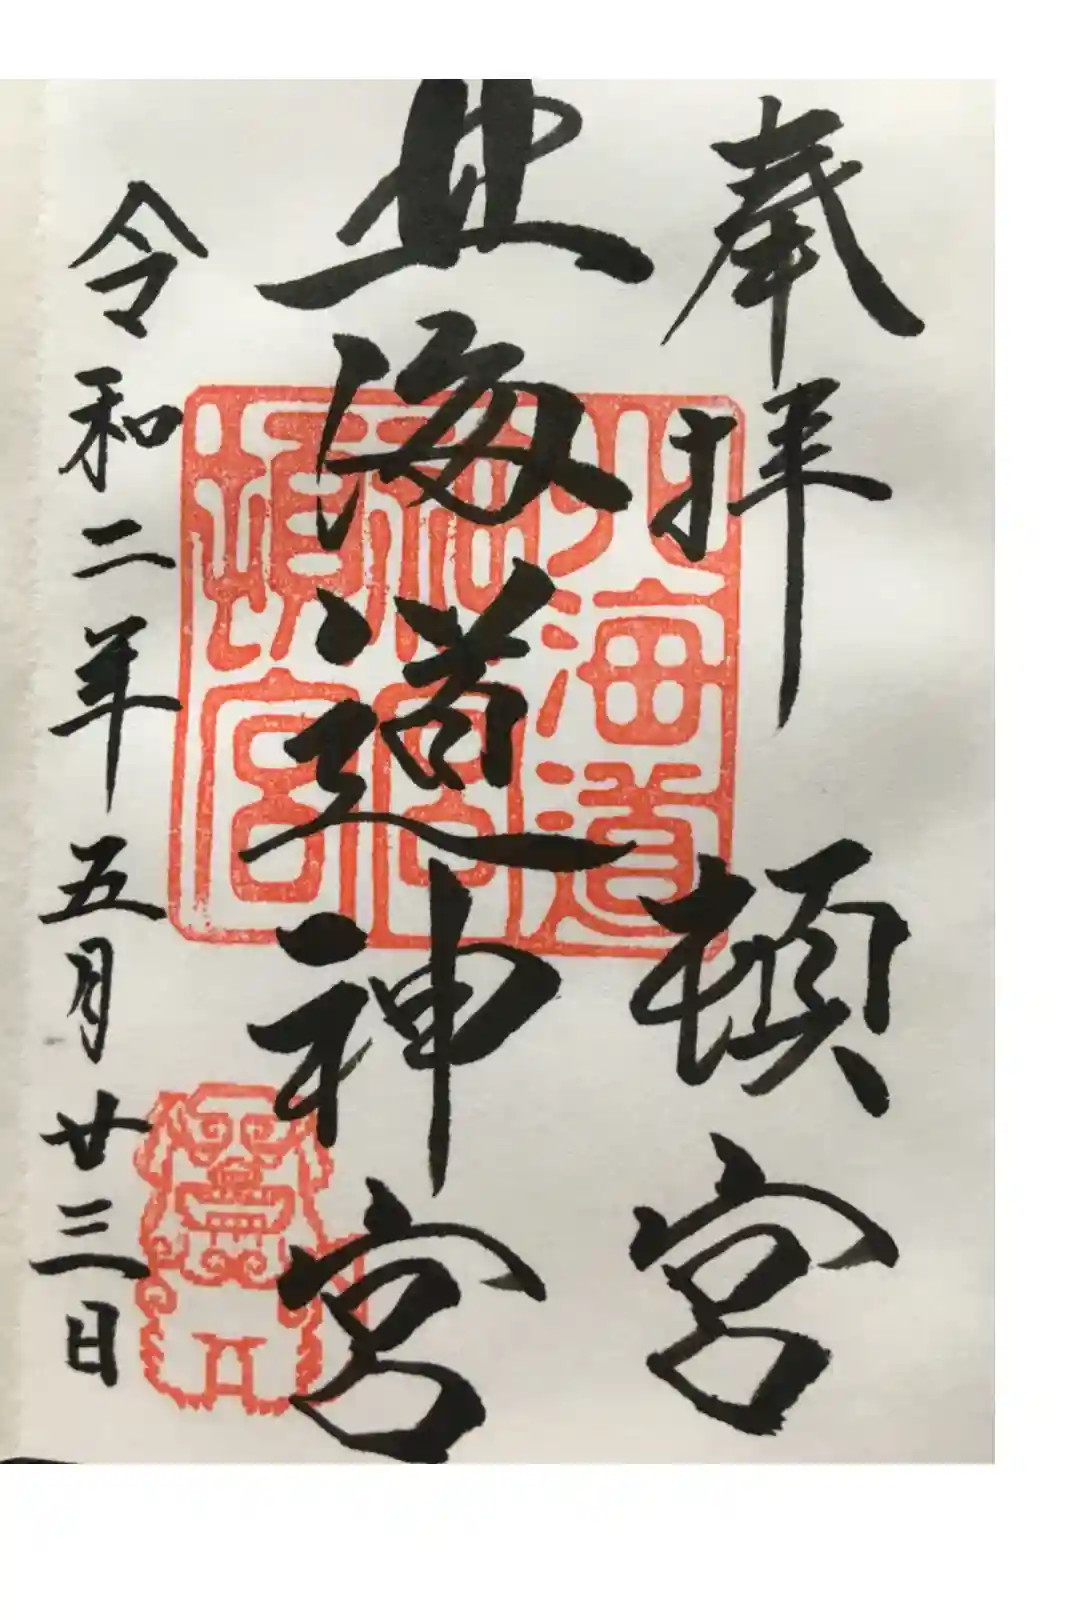 奉拝 頓宮
北海道神宮
令和二年五月廿三日
北海道
神宮
頓宮